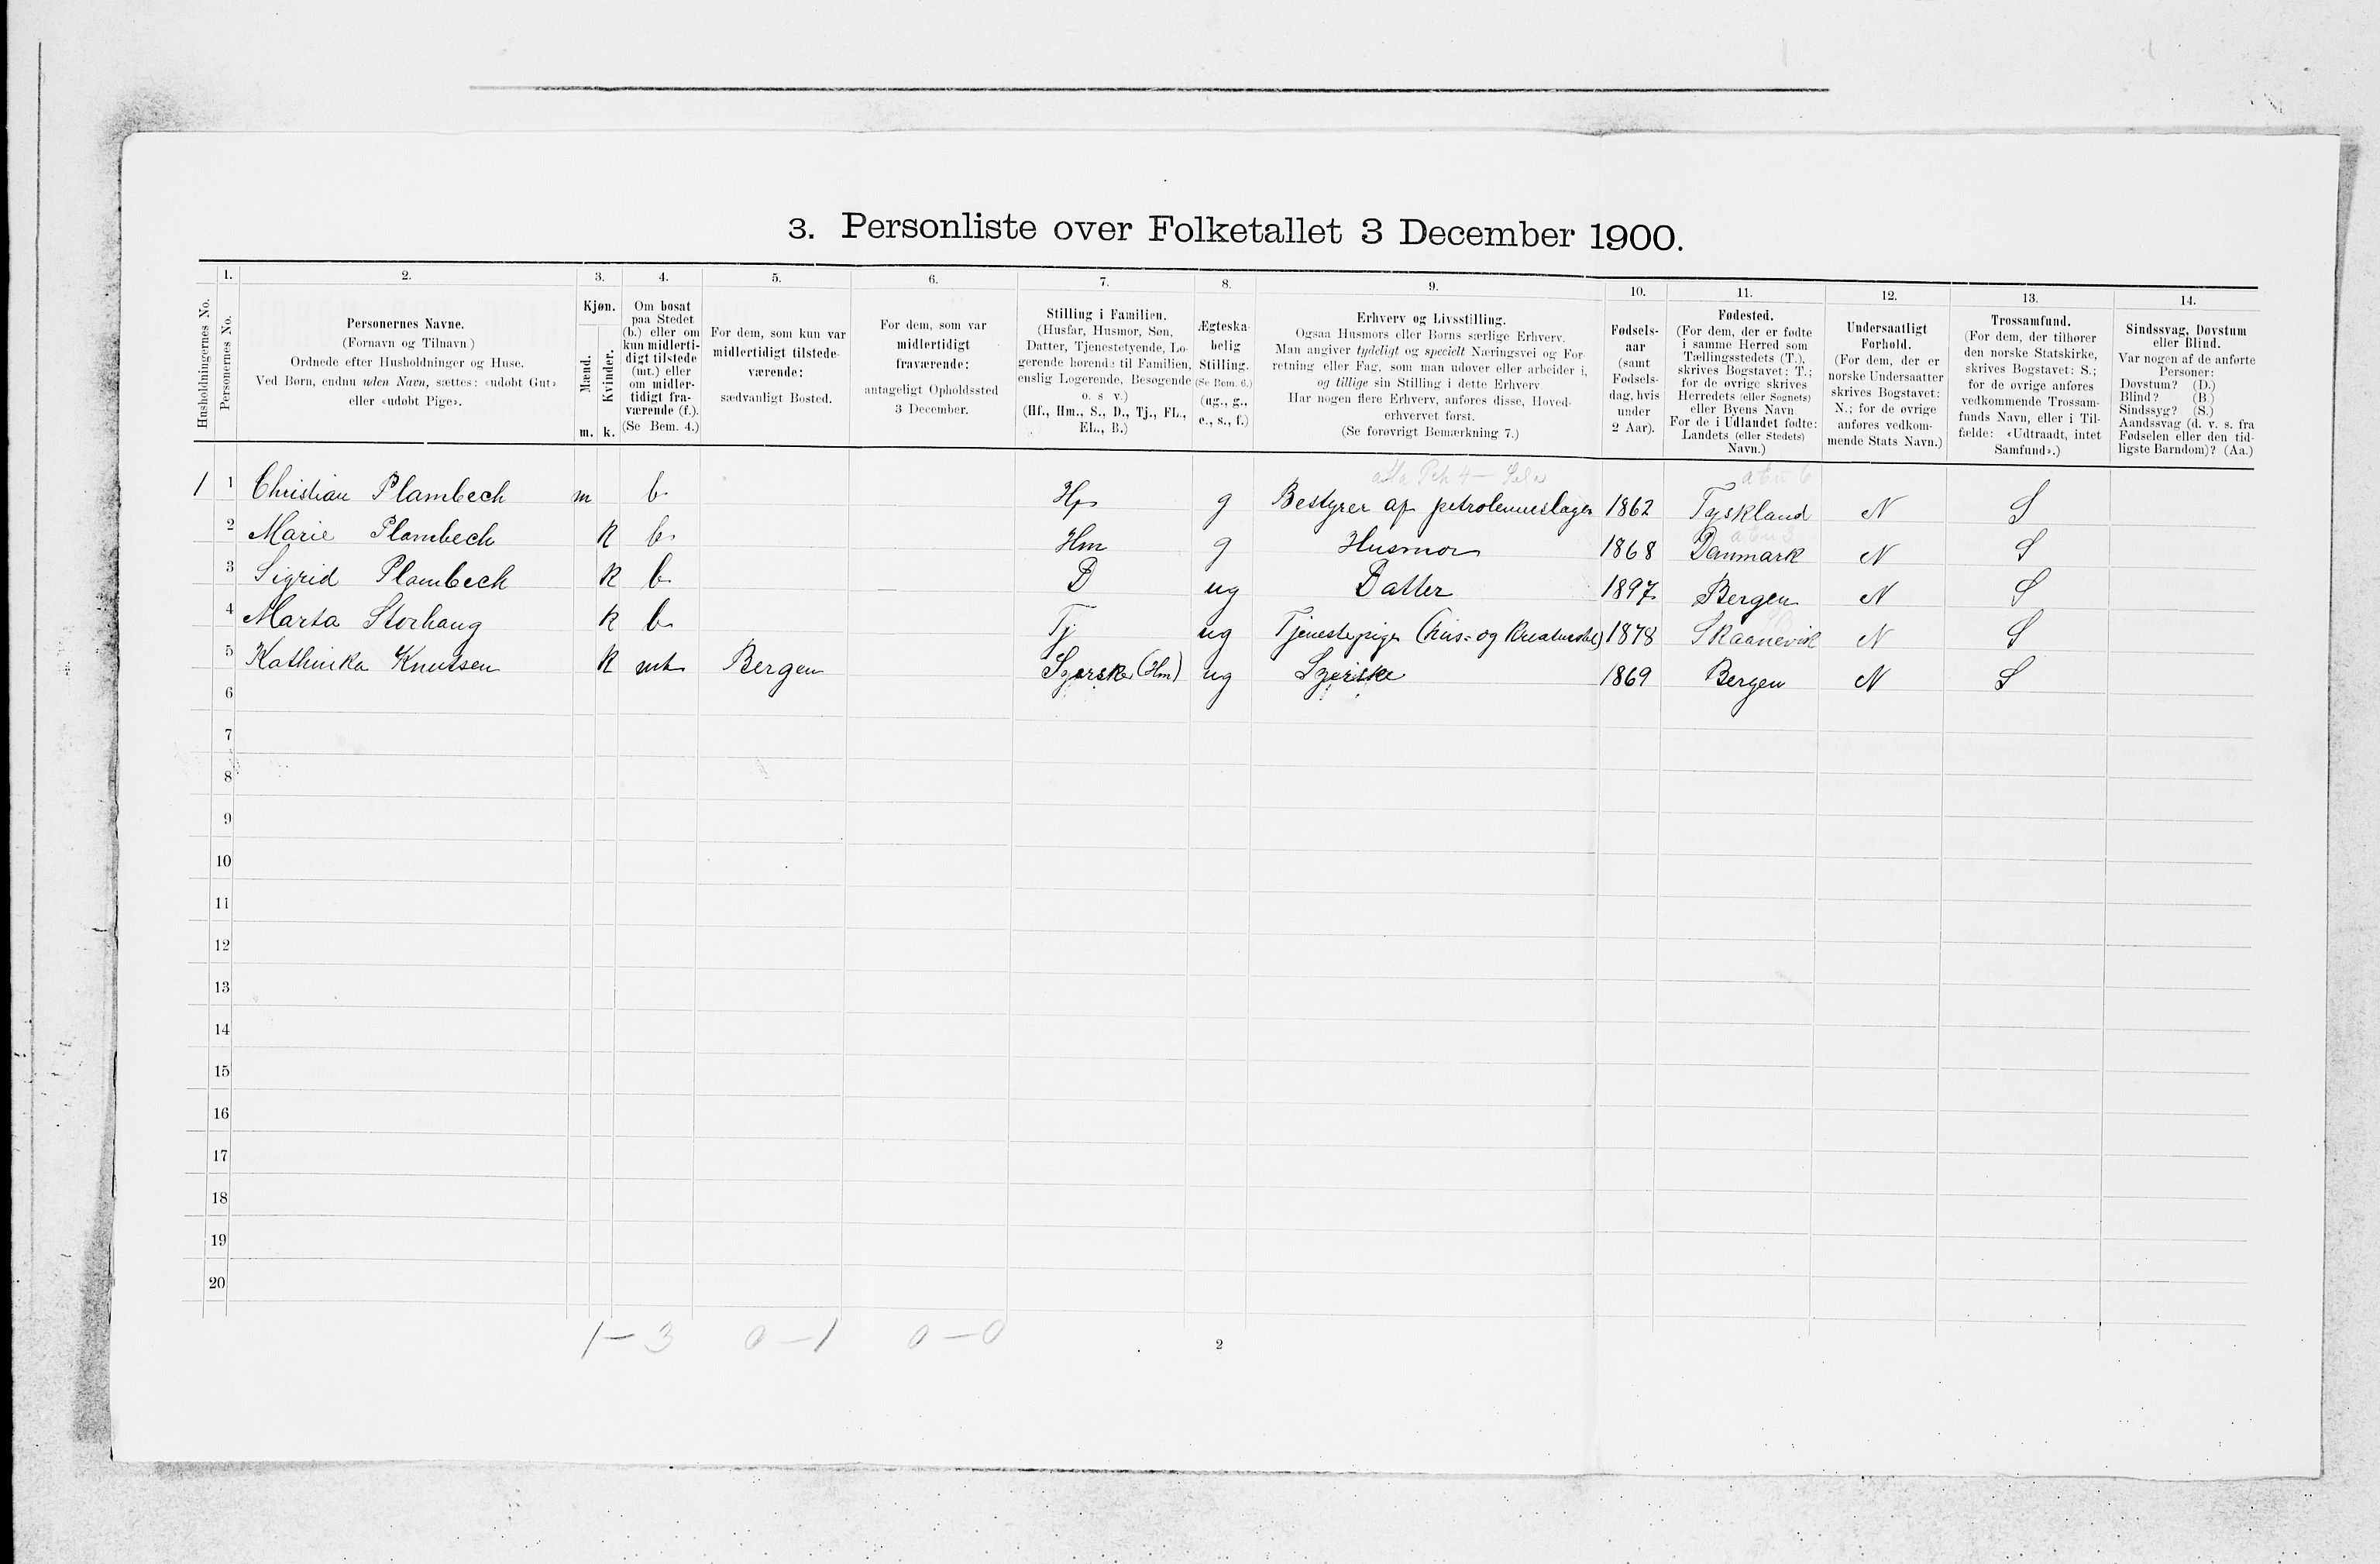 3. Personliste over Folketallet 3 December 1900.
Husholdningernes No.
1.
Personernes No.
2.
Personernes Navne.
(Fornavn og Tilnavn)
Ordnede efter Husholdninger og Huse.
Ved Børn, endnu uden Navn, sættes: «udøbt Gut»
eller «udøbt Pige».
3.
Kjøn.
Mænd.
Kvinder.
m. k.
4.
Om bosat
paa Stedet
(b.) eller om
kun midlerti-
digt tilstede
(mt.) eller
om midler-
tidigt fra-
værende (f.).
(Se Bem. 4.)
5.
For dem, som kun var
midlertidigt tilstede-
værende:
sædvanligt Bosted.
6.
For dem, som var
midlertidigt
fraværende:
antageligt Opholdssted
3 December.
7.
Stilling i Familien.
(Husfar, Husmor, Søn,
Datter, Tjenestetyende, Lo-
gerende hørende til Familien,
enslig Logerende, Besøgende
o. s v.)
(Hf., Hm., S., D., Tj., FL.,
EL., B.)
8.
Ægteska-
belig
Stilling.
(Se Bem. 6.)
(ug., g.,
e., s., f.)
9.
Erhverv og Livsstilling.
Ogsaa Husmors eller Børns særlige Erhverv.
Man angiver tydeligt og specielt Næringsvei og For-
retning eller Fag, som man udøver eller arbeider i,
og tillige sin Stilling i dette Erhverv.
Har nogen flere Erhverv, anføres disse, Hoved-
erhvervet først.
(Se forøvrigt Bemærkning 7.)
10.
Fødsels-
aar
(samt
Fødsels-
dag, hvis
under
2 Aar).
11.
Fødested.
(For dem, der er fødte
i samme Herred som
Tællingsstedets (T.),
skrives Bogstavet: T.;
for de øvrige skrives
Herredets (eller Sognets)
eller Byens Navn
For de i Udlandet fødte:
Landets (eller Stedets)
Navn.)
12.
Undersaatligt
Forhold.
(For dem, der er
norske Undersaatter
skrives Bogstavet:
N.; for de øvrige
anføres vedkom-
mende Stats Navn.)
13.
Trossamfund.
(For dem, der tilhører
den norske Statskirke,
skrives Bogstavet: S.;
for de øvrige anføres
vedkommende Trossam-
funds Navn, eller i Til-
fælde: «Udtraadt, intet
Samfund».)
14.
Sindssvag, Døvstum
eller Blind.
Var nogen af de anførte
Personer:
Døvstum? (D.)
Blind? (B.)
Sindssyg? (S.)
Aandssvag (d. v. s. fra
Fødselen eller den tid-
ligste Barndom)? (Aa.)
1 1 Christian Plambech m b. Hf g Bestyrer af petroleumslager 1862 Tyskland N S
2 Marie Plambech K b. Hm g Husmor 1868 Danmark N S
3 Sigrid Plambech K b. D ug Datter 1897 Bergen N S
4 Marta Storhaug K b. Tj ug Tjenestepige (hus= og Kreaturstel) 1878 Skaanevik N S
5 Kathinka Knutsen K mt Bergen Syerske (Hm) ug Syerske 1869 Bergen N S
6
7
8
9
10
11
12
13
14
15
16
17
18
19
20
1 – 3 0 – 1 0 – 0
2